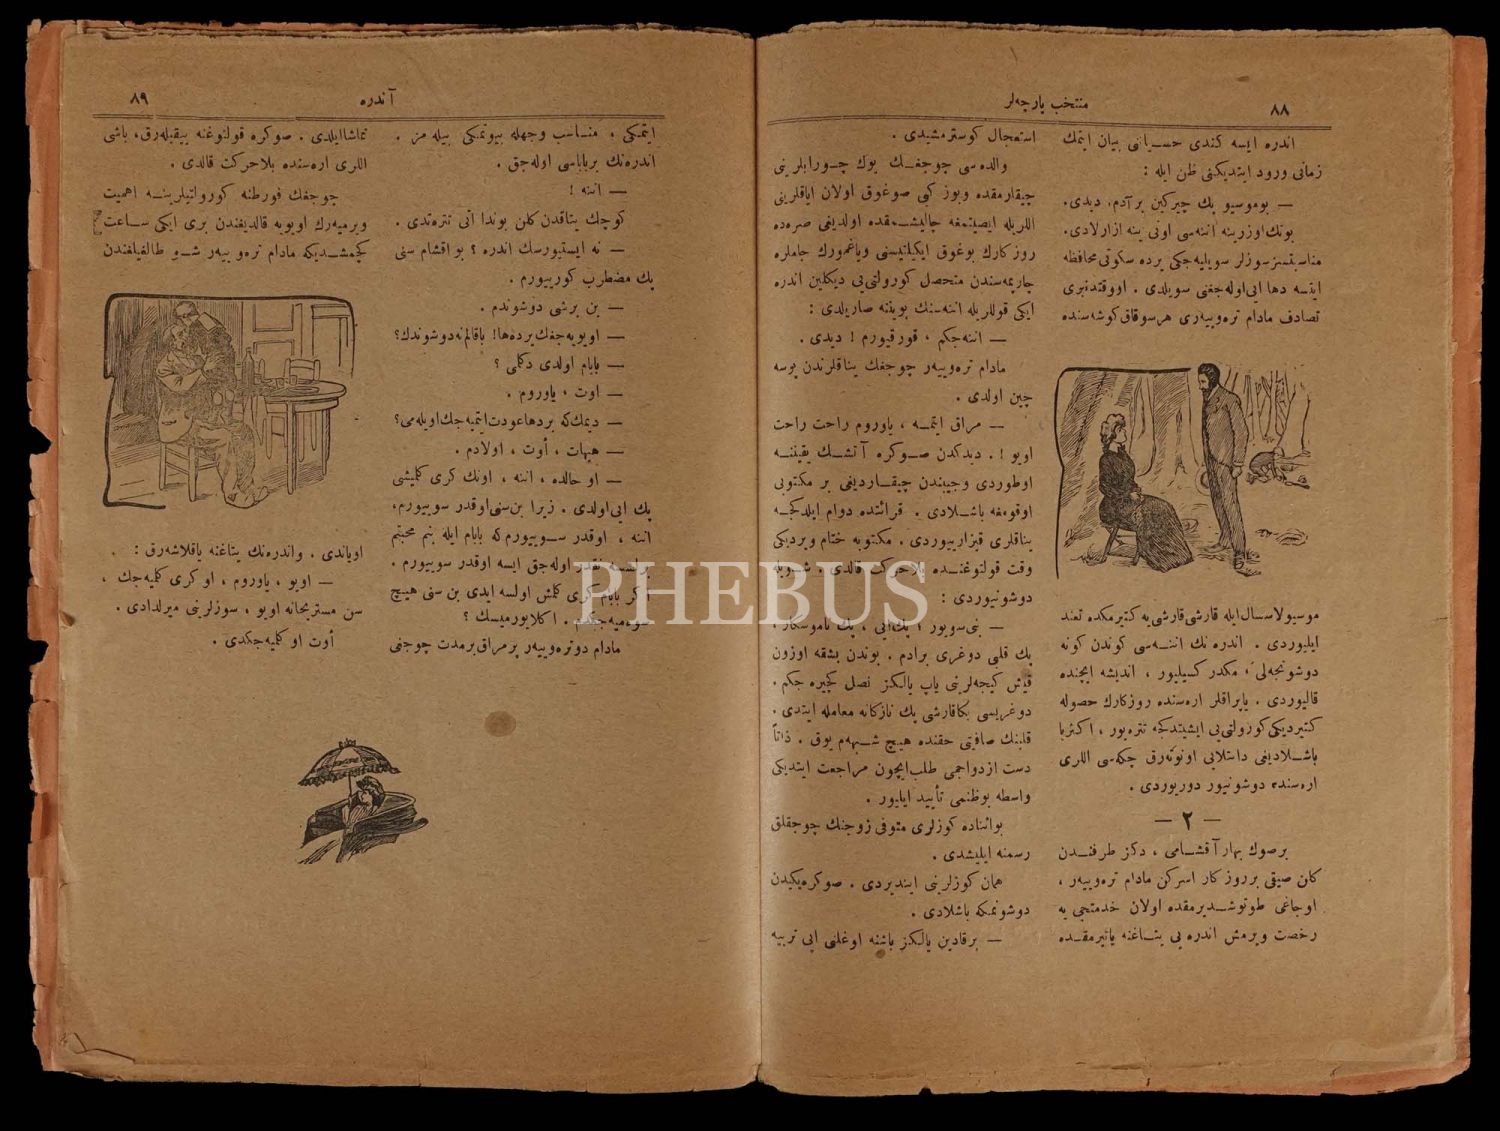 ٨٨
منتخب پارچه‌لر
اندره ایسه کندی حسیاتنی بیان ایتمك
زمانی ورود ایتدیکنی ظن ایله :
— بوموسیو پك چیرکین برآدم، دیدی.
بونك اوزرینه اننه‌سی اونی ینه ازارلادی.
مناسبتسز سوزلر سویلیه‌جکی یرده سکوتی محافظه
ایتسه دها ایی اوله‌جغنی سویلدی . اووقتدنبری
تصادف مادام تره‌وییه‌ری هر سوقاق کوشه‌سنده
موسیو لاسال ایله قارشی قارشی‌یه کتیرمکده تعند
ایلیوردی . اندره نك اننه‌سی کوندن کونه
دوشونجه‌لی، مکدر کسیلیور ، اندیشه ایچنده
قالیوردی . یاپراقلر اره‌سنده روزکارك حصوله
کتیردیکی کورولتی‌یی ایشیتدکجه تتره‌یور ، اکثریا
باشلادیغی دانتلایی اونوته‌رق چکه‌سی اللری
اره‌سنده دوشونیور دوریوردی .
— ٢ —
برصوك بهار آقشامی ، دکز طرفندن
کلن صیقی برروزکار اسرکن مادام تره‌وییه‌ر ،
اوجاغی طوتوشدیرمقده اولان خدمتجی یه
رخصت ویرمش اندره یی یتاغنه یاتیرمقده
استعجال کوسترمشیدی .
والده‌سی چوجغك یوك چورابلرینی
چیقارمقده وبوز کبی صوغوق اولان ایاقلرینی
اللریله ایصیتمغه چالیشمقده اولدیغی صره‌ده
روزکارك بوغوق ایکیلتیسنی ویاغمورك جاملره
چارپمه‌سندن متحصل کورولتی‌یی دیکلین اندره
ایکی قوللریله اننه‌سنك بویننه صاریلدی :
— اننه‌جکم ، قورقیورم ! دیدی .
مادام تره‌وییه‌ر چوجغك یناقلرندن بوسه
چین اولدی .
— مراق ایتمه ، یاوروم راحت راحت
اویو ! . دیدکدن صوکره آتشك یقیننه
اوطوردی وجیبندن چیقاردیغی بر مکتوبی
اوقومغه باشلادی . قرائتده دوام ایلدکجه
یناقلری قیزاریوردی . مکتوبه ختام ویردیکی
وقت قولتوغنده بلاحرکت قالدی . شویله
دوشونیوردی :
— بنی سویور ؛ پك ایی ، پك ناموسکار ،
پك قلبی دوغری برادم . بوندن بشقه اوزون
قیش کیجه‌لرینی یاپ یالکز نصل کچیره جکم .
دوغریسی بکاقارشی پك نازکانه معامله ایتدی .
قلبنك صافیتی حقنده هیچ شبهه‌م یوق . ذاتاً
دست ازدواجمی طلب ایچون مراجعت ایتدیکی
واسطه بوظنمی تأیید ایلیور .
بواثناده کوزلری متوفی زوجنك چوجقلق
رسمنه ایلیشدی .
همان کوزلرینی ایندیردی . صوکره یکیدن
دوشونمکه باشلادی .
— برقادین یالکز باشنه اوغلنی ایی تربیه
آندره
٨٩
ایتمکی ، مناسب وجهله بیوتمکی بیله مز .
اندره‌نك بربابا‌سی اوله‌جق .
— اننه !
کوچك یتاقدن کلن بوندا انی تتره‌تدی .
— نه ایستیورسك اندره ؟ بو اقشام سنی
پك مضطرب کورییورم .
— بن برشی دوشوندم .
— اویویه‌جغك یرده‌ها! باقالم نه دوشوندك؟
— بابام اولدی دکلمی ؟
— اوت ، یاوروم .
— دیمك که بردها عودت ایتمیه جك اویله‌می؟
— هیهات ، أوت ، اولادم .
— او حالده ، اننه ، اونك کری کلمیشی
پك ایی اولدی . زیرا بن سنی اوقدر سوییورم،
اننه ، اوقدر سوییورم که بابام ایله بنم محبتم
نقدر اوله‌جق ایسه اوقدر سوییورم .
اکر بابام کری کلمش اولسه ایدی بن سنی هیچ
سومیه‌جکدم . اکلایورمیسك ؟
مادام دوتره‌وییه‌ر پرمراق برمدت چوجغنی
تماشا ایلدی . صوکره قولتوغنه ییقیله‌رق، باشی
اللری اره‌سنده بلاحرکت قالدی .
چوجغك فورطنه کورولتیلرینه اهمیت
ویرمیه‌رك اویویه قالدیغندن بری ایکی ساعت
کچمشدیکه مادام تره‌وییه‌ر شو طالغینلغندن
اویاندی . واندره‌نك یتاغنه یاقلاشه‌رق :
— اویو ، یاوروم ، او کری کلمیه‌جك ،
سن مستریحانه اویو ، سوزلرینی میرلدادی .
أوت او کلمیه‌جکدی .
PHEBUS